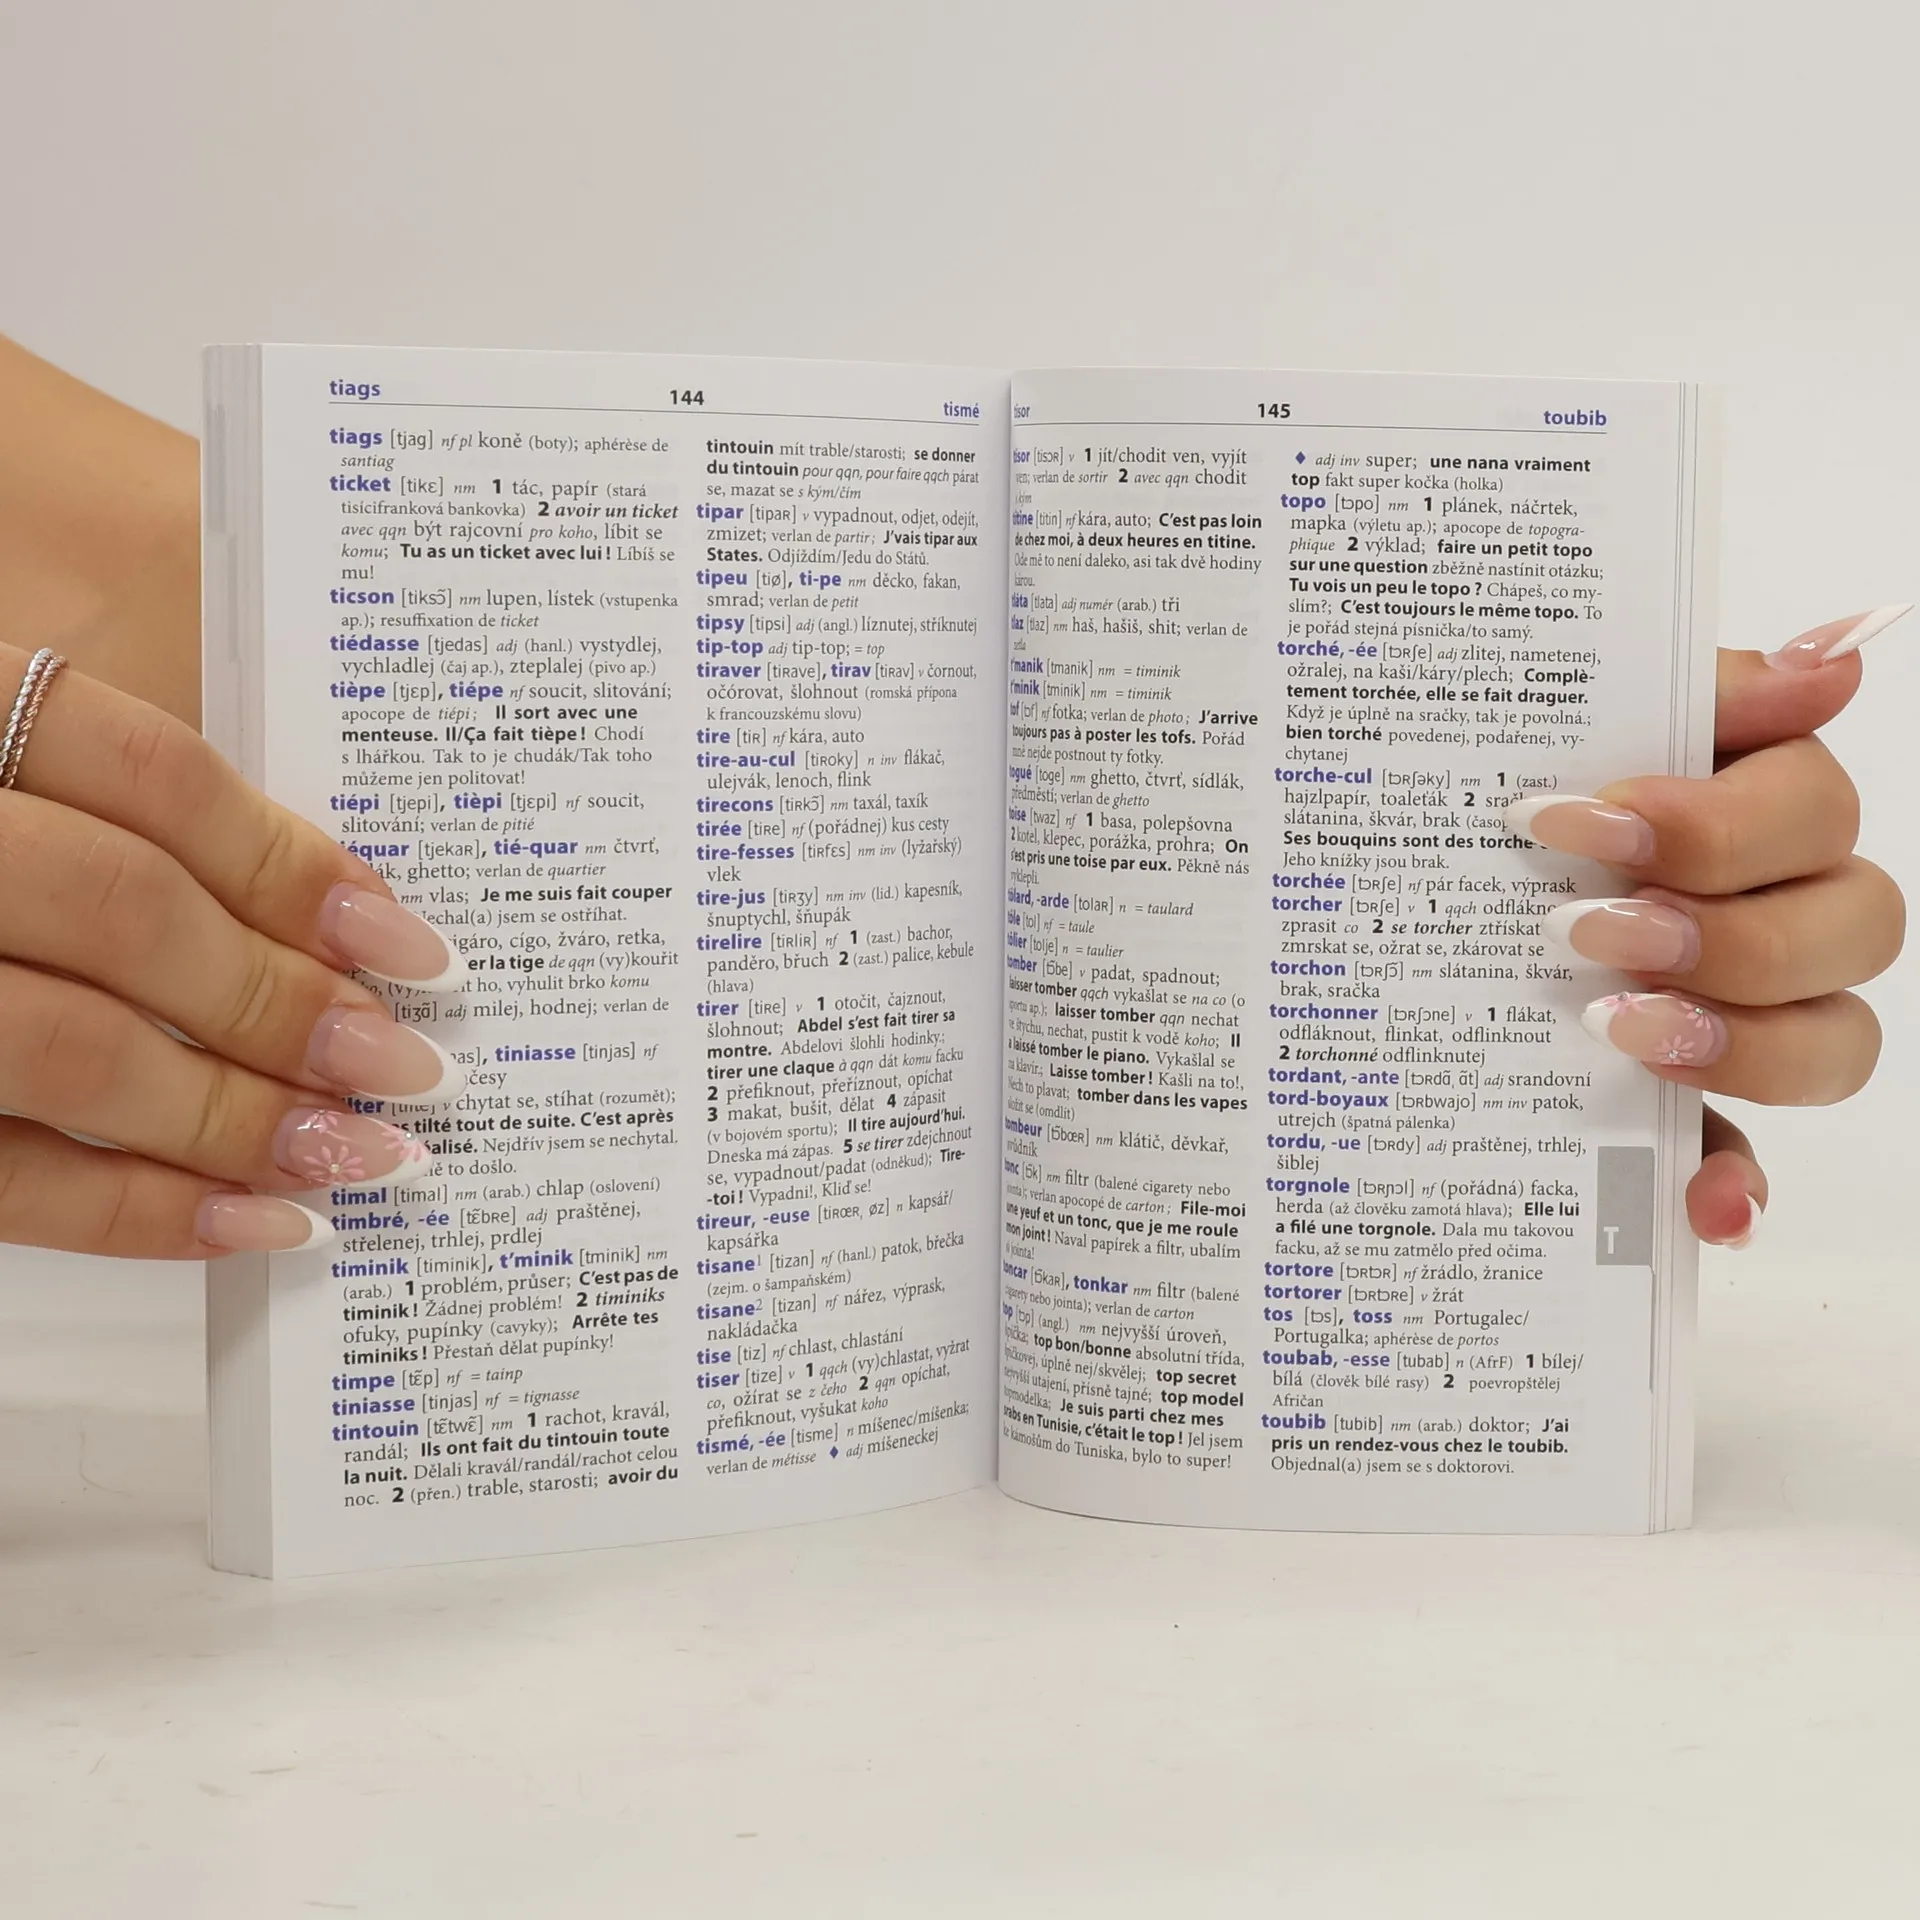 tiags
144
tismé
tiags [tjag] nf pl koně (boty); aphérèse de
santiag
ticket [tikɛ] nm 1 tác, papír (stará
tisícifranková bankovka) 2 avoir un ticket
avec qqn být rajcovní pro koho, líbit se
komu; Tu as un ticket avec lui ! Líbíš se
mu!
ticson [tiksɔ̃] nm lupen, lístek (vstupenka
ap.); resuffixation de ticket
tiédasse [tjedas] adj (hanl.) vystydlej,
vychladlej (čaj ap.), zteplalej (pivo ap.)
tièpe [tjɛp], tiépe nf soucit, slitování;
apocope de tiépi; Il sort avec une
menteuse. Il/Ça fait tièpe ! Chodí
s lhářkou. Tak to je chudák/Tak toho
můžeme jen politovat!
tiépi [tjepi], tièpi [tjɛpi] nf soucit,
slitování; verlan de pitié
[tjekaʀ], tié-quar nm čtvrť,
ghetto; verlan de quartier
nm vlas; Je me suis fait couper
jsem se ostříhat.
cígo, žváro, retka,
la tige de qqn (vy)kouřit
ho, vyhulit brko komu
[tiʒɑ̃] adj milej, hodnej; verlan de
tiniasse [tinjas] nf
v chytat se, stíhat (rozumět);
tilté tout de suite. C'est après
Nejdřív jsem se nechytal.
to došlo.
timal [timal] nm (arab.) chlap (oslovení)
timbré, -ée [tɛ̃bʀe] adj praštěnej,
střelenej, trhlej, prdlej
timinik [timinik], t'minik [tminik] nm
(arab.) 1 problém, průser; C'est pas de
timinik ! Žádnej problém! 2 timiniks
ofuky, pupínky (cavyky); Arrête tes
timiniks ! Přestaň dělat pupínky!
timpe [tɛ̃p] nf = tainp
tiniasse [tinjas] nf = tignasse
tintouin [tɛ̃twɛ̃] nm 1 rachot, kravál,
randál; Ils ont fait du tintouin toute
la nuit. Dělali kravál/randál/rachot celou
noc. 2 (přen.) trable, starosti; avoir du
tintouin mít trable/starosti; se donner
du tintouin pour qqn, pour faire qqch párat
se, mazat se s kým/čím
tipar [tipaʀ] v vypadnout, odjet, odejít,
zmizet; verlan de partir; J'vais tipar aux
States. Odjíždím/Jedu do Států.
tipeu [tiø], ti-pe nm děcko, fakan,
smrad; verlan de petit
tipsy [tipsi] adj (angl.) líznutej, stříknutej
tip-top adj tip-top; = top
tiraver [tiʀave], tirav [tiʀav] v čornout,
očórovat, šlohnout (romská přípona
k francouzskému slovu)
tire [tiʀ] nf kára, auto
tire-au-cul [tiʀoky] n inv flákač,
ulejvák, lenoch, flink
tirecons [tiʀkɔ̃] nm taxál, taxík
tirée [tiʀe] nf (pořádnej) kus cesty
tire-fesses [tiʀfɛs] nm inv (lyžařský)
vlek
tire-jus [tiʀʒy] nm inv (lid.) kapesník,
šnuptychl, šňupák
tirelire [tiʀliʀ] nf 1 (zast.) bachor,
panděro, břuch 2 (zast.) palice, kebule
(hlava)
tirer [tiʀe] v 1 otočit, čajznout,
šlohnout; Abdel s'est fait tirer sa
montre. Abdelovi šlohli hodinky.;
tirer une claque à qqn dát komu facku
2 přefiknout, přeříznout, opíchat
3 makat, bušit, dělat 4 zápasit
(v bojovém sportu); Il tire aujourd'hui.
Dneska má zápas. 5 se tirer zdejchnout
se, vypadnout/padat (odněkud); Tire-
-toi ! Vypadni!, Kliď se!
tireur, -euse [tiʀœʀ, øz] n kapsář/
kapsářka
tisane¹ [tizan] nf (hanl.) patok, břečka
(zejm. o šampaňském)
tisane² [tizan] nf nářez, výprask,
nakládačka
tise [tiz] nf chlast, chlastání
tiser [tize] v 1 qqch (vy)chlastat, vyžrat
co, ožírat se z čeho 2 qqn opíchat,
přefiknout, vyšukat koho
tismé, -ée [tisme] n míšenec/míšenka;
verlan de métisse ♦ adj míšeneckej
tisor
145
toubib
tisor [tisɔʀ] v 1 jít/chodit ven, vyjít
ven; verlan de sortir 2 avec qqn chodit
s kým
titine [titin] nf kára, auto; C'est pas loin
de chez moi, à deux heures en titine.
Ode mě to není daleko, asi tak dvě hodiny
károu.
tlata [tlata] adj numér (arab.) tři
tlaz [tlaz] nm haš, hašiš, shit; verlan de
t'manik [tmanik] nm = timinik
t'minik [tminik] nm = timinik
tof [tɔf] nf fotka; verlan de photo; J'arrive
toujours pas à poster les tofs. Pořád
mně nejde postnout ty fotky.
togué [toge] nm ghetto, čtvrť, sídlák,
předměstí; verlan de ghetto
toise [twaz] nf 1 basa, polepšovna
2 kotel, klepec, porážka, prohra; On
s'est pris une toise par eux. Pěkně nás
vyklepli.
tolard, -arde [tolaʀ] n = taulard
tôle [tol] nf = taule
tôlier [tolje] n = taulier
tomber [tɔ̃be] v padat, spadnout;
laisser tomber qqch vykašlat se na co (o
sportu ap.); laisser tomber qqn nechat
ve štychu, nechat, pustit k vodě koho; Il
a laissé tomber le piano. Vykašlal se
na klavír.; Laisse tomber ! Kašli na to!,
Nech to plavat; tomber dans les vapes
složit se (omdlít)
tombeur [tɔ̃bœʀ] nm klátič, děvkař,
svůdník
tonc [tɔ̃k] nm filtr (balené cigarety nebo
jointa); verlan apocopé de carton; File-moi
une yeuf et un tonc, que je me roule
mon joint ! Naval papírek a filtr, ubalím
si jointa!
toncar [tɔ̃kaʀ], tonkar nm filtr (balené
cigarety nebo jointa); verlan de carton
top [tɔp] (angl.) nm nejvyšší úroveň,
špička; top bon/bonne absolutní třída,
špičkovej, úplně nej/skvělej; top secret
nejvyšší utajení, přísně tajné; top model
topmodelka; Je suis parti chez mes
arabs en Tunisie, c'était le top ! Jel jsem
ke kámošům do Tuniska, bylo to super!
♦ adj inv super; une nana vraiment
top fakt super kočka (holka)
topo [tɔpo] nm 1 plánek, náčrtek,
mapka (výletu ap.); apocope de topogra-
phique 2 výklad; faire un petit topo
sur une question zběžně nastínit otázku;
Tu vois un peu le topo ? Chápeš, co my-
slím?; C'est toujours le même topo. To
je pořád stejná písnička/to samý.
torché, -ée [tɔʀʃe] adj zlitej, nametenej,
ožralej, na kaši/káry/plech; Complè-
tement torchée, elle se fait draguer.
Když je úplně na sračky, tak je povolná.;
bien torché povedenej, podařenej, vy-
chytanej
torche-cul [tɔʀʃəky] nm 1 (zast.)
hajzlpapír, toaleťák 2
slátanina, škvár, brak
Ses bouquins sont des torche-
Jeho knížky jsou brak.
torchée [tɔʀʃe] nf pár facek, výprask
torcher [tɔʀʃe] v 1 qqch
zprasit co 2 se torcher ztřískat
zmrskat se, ožrat se, zkárovat se
torchon [tɔʀʃɔ̃] nm slátanina, škvár,
brak, sračka
torchonner [tɔʀʃɔne] v 1 flákat,
odfláknout, flinkat, odflinknout
2 torchonné odflinknutej
tordant, -ante [tɔʀdɑ̃, ɑ̃t] adj srandovní
tord-boyaux [tɔʀbwajo] nm inv patok,
utrejch (špatná pálenka)
tordu, -ue [tɔʀdy] adj praštěnej, trhlej,
šiblej
torgnole [tɔʀɲɔl] nf (pořádná) facka,
herda (až člověku zamotá hlava); Elle lui
a filé une torgnole. Dala mu takovou
facku, až se mu zatmělo před očima.
tortore [tɔʀtɔʀ] nf žrádlo, žranice
tortorer [tɔʀtɔʀe] v žrát
tos [tɔs], toss nm Portugalec/
Portugalka; aphérèse de portos
toubab, -esse [tubab] n (AfrF) 1 bílej/
bílá (člověk bílé rasy) 2 poevropštělej
Afričan
toubib [tubib] nm (arab.) doktor; J'ai
pris un rendez-vous chez le toubib.
Objednal(a) jsem se s doktorovi.
T